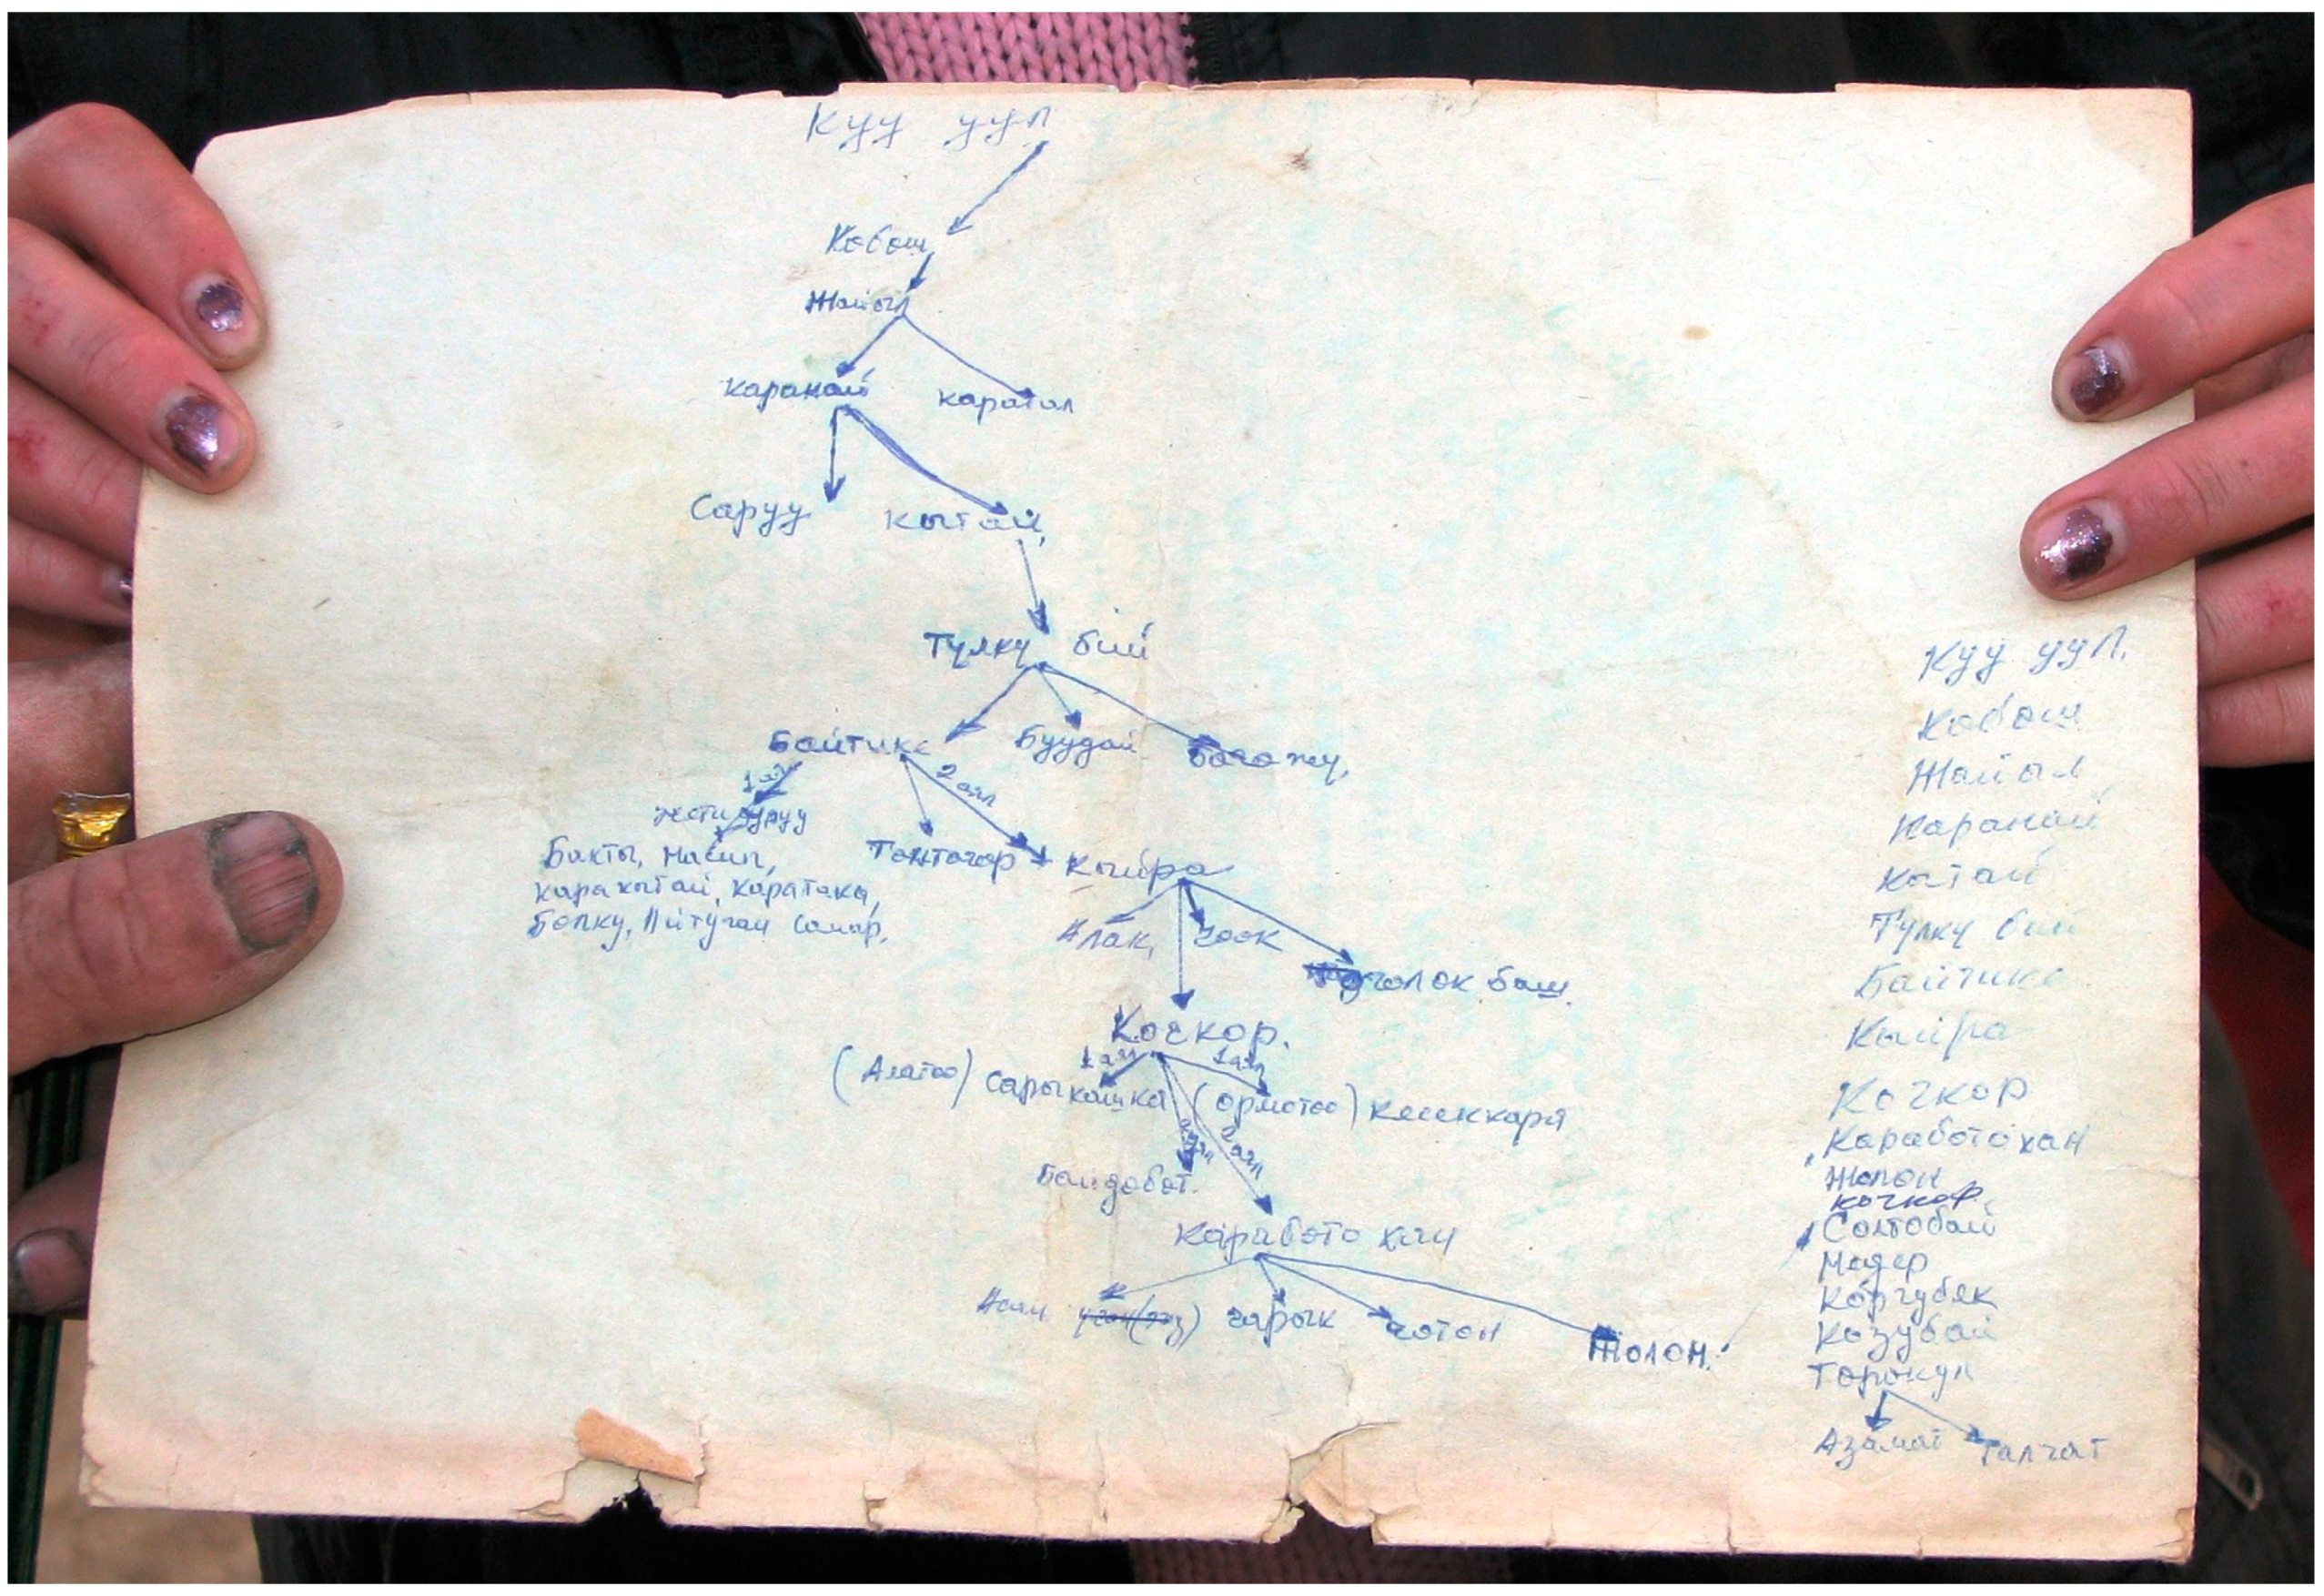 Куу уул
Кобош
Жайыл
каранай каратал
Саруу кытай,
Тулку бий
Байтике Буудай
1 аял 2 аял
жети уруу
Бакты,
кара кытай, каратака,
Тонтогор Кыйра
Алак, чоок
чолок баш.
Кочкор.
1 аял 1 аял
(Алатоо) Сарыкашка (ормотоо) кесеккара
2 аял 2 аял
Байдобот.
Каработо хан
чарык чотон Жолон.
Куу уул.
Кобош
Жайыл
Каранай
Кытай
Тулку бий
Байтике
Кыйра
Кочкор
Каработо хан
Жолон
кочкор
Солтобай
Мадер
Коргубек
Козубай
Торокул
Азамат Талчат